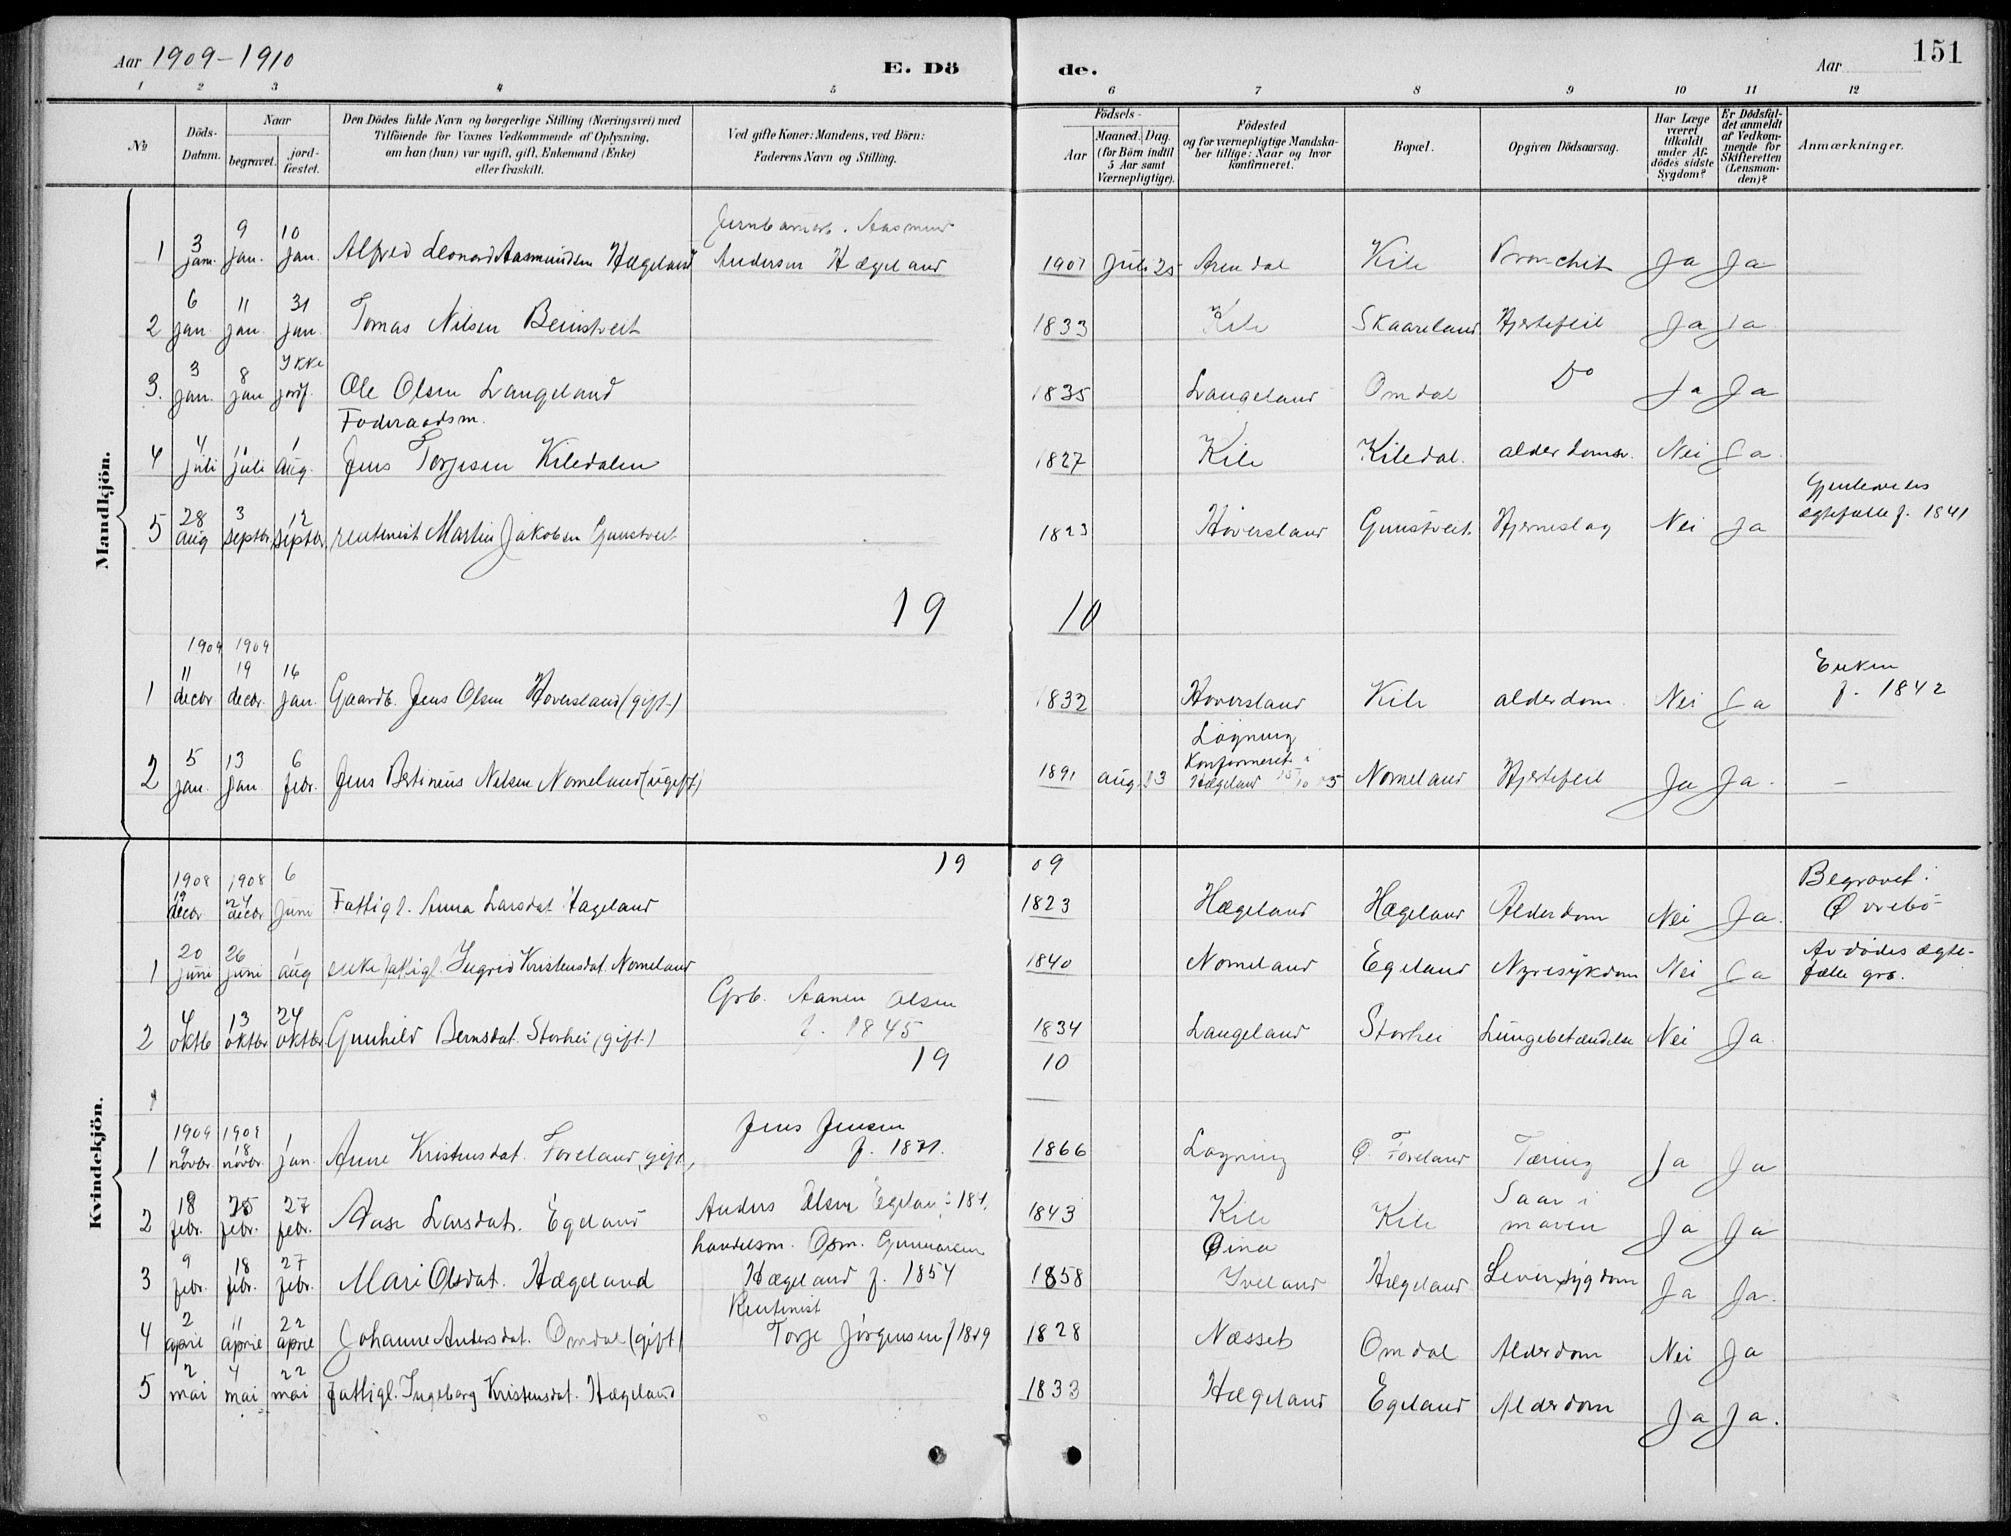 Aar 1909-1910 E. Dö de. Aar 151
1 2 3 4 5 6 7 8 9 10 11 12
№
Döds-Datum.
Naar
begravet.
jord-fæstet.
Den Dödes fulde Navn og borgerlige Stilling (Næringsvei) med
Tilföiende for Voxnes Vedkommende af Oplysning,
om han (hun) var ugift, gift, Enkemand (Enke)
eller fraskilt.
Ved gifte Koner: Mandens, ved Börn:
Faderens Navn og Stilling.
Födsels-
Aar
Maaned. Dag.
(for Börn indtil
5 Aar samt
Værnepligtige).
Födested
og for værnepligtige Mandska-
ber tillige: Naar og hvor
konfirmeret.
Bopæl.
Opgiven Dödsaarsag.
Har Læge
været
tilkaldt
under Af-
dödes sidste
Sygdom?
Er Dödsfal-
det anmeldt
af Vedkom-
mende for
Skifteretten
(Lensman-
den)?
Anmærkninger.
Mandkjön.
1 3 jan. 9 jan. 10 jan. Alfred Leonard Aasmundsen Hægeland Aasmund Andersen Hægeland 1907 Juli 25 Arendal Kile Bronchit Ja Ja
2 6 jan. 11 jan. 31 jan. Tomas Nilsen Beinstveit 1833 Kile Skaareland Hjertefeil Ja Ja
3. 3 jan. 8 jan Ikke jordf. Ole Olsen Langeland 1835 Langeland Omdal Do Ja Ja
Foderaadsm.
4 4 juli 11 juli 1 aug. Jens Torjesen Kiledalen 1827 Kile Kiledal. alderdomsv. Nei Ja
5 28 aug 3 septbr. 12 septbr. rentenist Martin Jakobsen Gunstveit 1823 Höversland Gunstveit. Hjerneslag Nei Ja Gjenlevendes ægtefælle f. 1841
19 10
1 1909 11 decbr 1909 19 decbr. 16 jan. Gaardb. Jens Olsen Höversland (gift) 1832 Höversland Kile alderdom. Nei Ja Enken f. 1842
2 5 jan. 13 jan 6 febr. Jens Bertineus Nilsen Nomeland (ugift) 1891 aug. Lögning Konfirmeret i Hægeland Nomeland Hjertefeil Ja Ja. —
Kvindekjön.
19 09
1908 19 decbr 1908 24 decbr 6 Juni Fattigl. Anna Larsdat. Hægeland 1823 Hægeland Hægeland Alderdom Nei Ja. Begravet i Øvrebö
1 20 juni 26 juni 1 aug enke fattigl. Ingrid Kristensdat. Nomeland 1840 Nomeland Egeland Nyresykdom Nei Ja Avdödes ægtefælle grb.
2 4 oktb 13 oktbr 24 oktbr. Gunhild Bernsdat. Storhei (gift) Grb. Aanen Olsen f. 1845 1834 Langeland Storhei Lungebetændelse Nei Ja.
19 10
1 1909 9 novbr. 1909 18 novbr. 1 jan. Anne Kristensdat. Föreland, gift, Jens Jensen f. 1871. 1866 Lögning Ø. Föreland Tæring Ja Ja
2 18 febr. 25 febr. 27 febr. Aase Larsdat. Egeland Anders Olsen Egeland 1843 Kile Kile Saar i maven Ja Ja
3 9 febr. 18 febr. 27 febr. Mari Olsdat. Hægeland handelsm. Osm. Gunnarsen Hægeland f. 1854 1858 Iveland Hægeland Leversygdom Ja Ja.
4 2 april 11 april 22 april Johanne Andersdat. Omdal (gift) Rentenist Torje Jörgensen f 1819 1828 Næsset Omdal Alderdom Nei Ja
5 2 mai 4 mai 22 mai fattigl. Ingeborg Kristensdat. Hægeland 1833 Hægeland Egeland Alderdom Ja Ja.